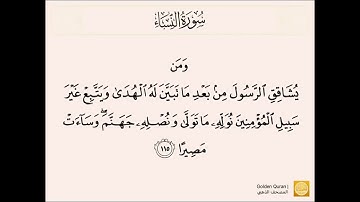 سُورَةُ النِّسَاءِ
وَمَن
يُشَاقِقِ الرَّسُولَ مِنۢ بَعْدِ مَا تَبَيَّنَ لَهُ الْهُدَىٰ وَيَتَّبِعْ غَيْرَ
سَبِيلِ الْمُؤْمِنِينَ نُوَلِّهِۦ مَا تَوَلَّىٰ وَنُصْلِهِۦ جَهَنَّمَ ۖ وَسَآءَتْ
مَصِيرًا ١١٥
Golden Quran |
المصحف الذهبي